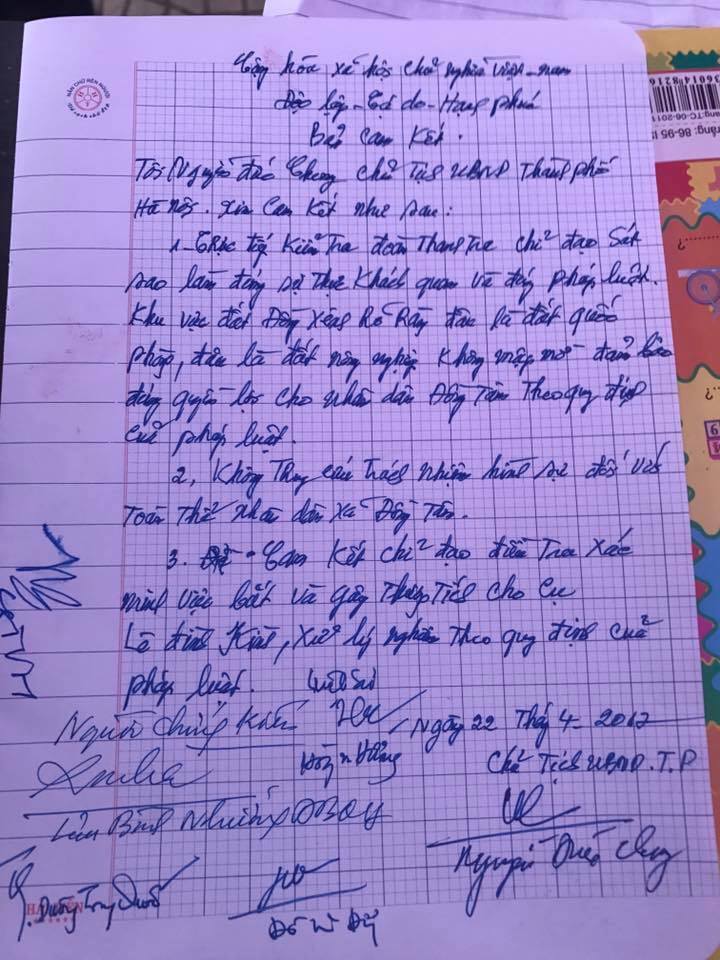 Cộng hòa xã hội chủ nghĩa Việt-nam
Độc lập-Tự do-Hạnh phúc
Bản Cam Kết.
Tôi Nguyễn Đức Chung Chủ Tịch UBND Thành phố
Hà Nội. Xin Cam Kết như sau:
1-Trực tiếp Kiểm Tra đoàn Thanh Tra chỉ đạo Sát
sao làm đúng sự thực Khách quan và đúng pháp luật.
Khu vực đất Đồng Xênh Rõ Ràng đâu là đất quốc
phòng, đâu là đất nông nghiệp Không mập mờ đảm bảo
đúng quyền lợi cho nhân dân Đồng Tâm Theo quy định
của pháp luật.
2, Không Truy cứu Trách nhiệm hình sự đối với
Toàn Thể nhân dân xã Đồng Tâm.
3. - Cam Kết chỉ đạo điều Tra Xác
minh việc bắt và gây Thương Tích cho Cụ
Lê đình Kình, Xử lý nghiêm Theo quy định của
pháp luật.
Luật sư
Người chứng Kiến
Ngày 22 Tháng 4-2017
Chủ Tịch UBND.T.P
Lưu Bình Nhưỡng ĐBQH
Nguyễn Đức Chung
Dương Trung Quốc
Đỗ V Đ
HẠ